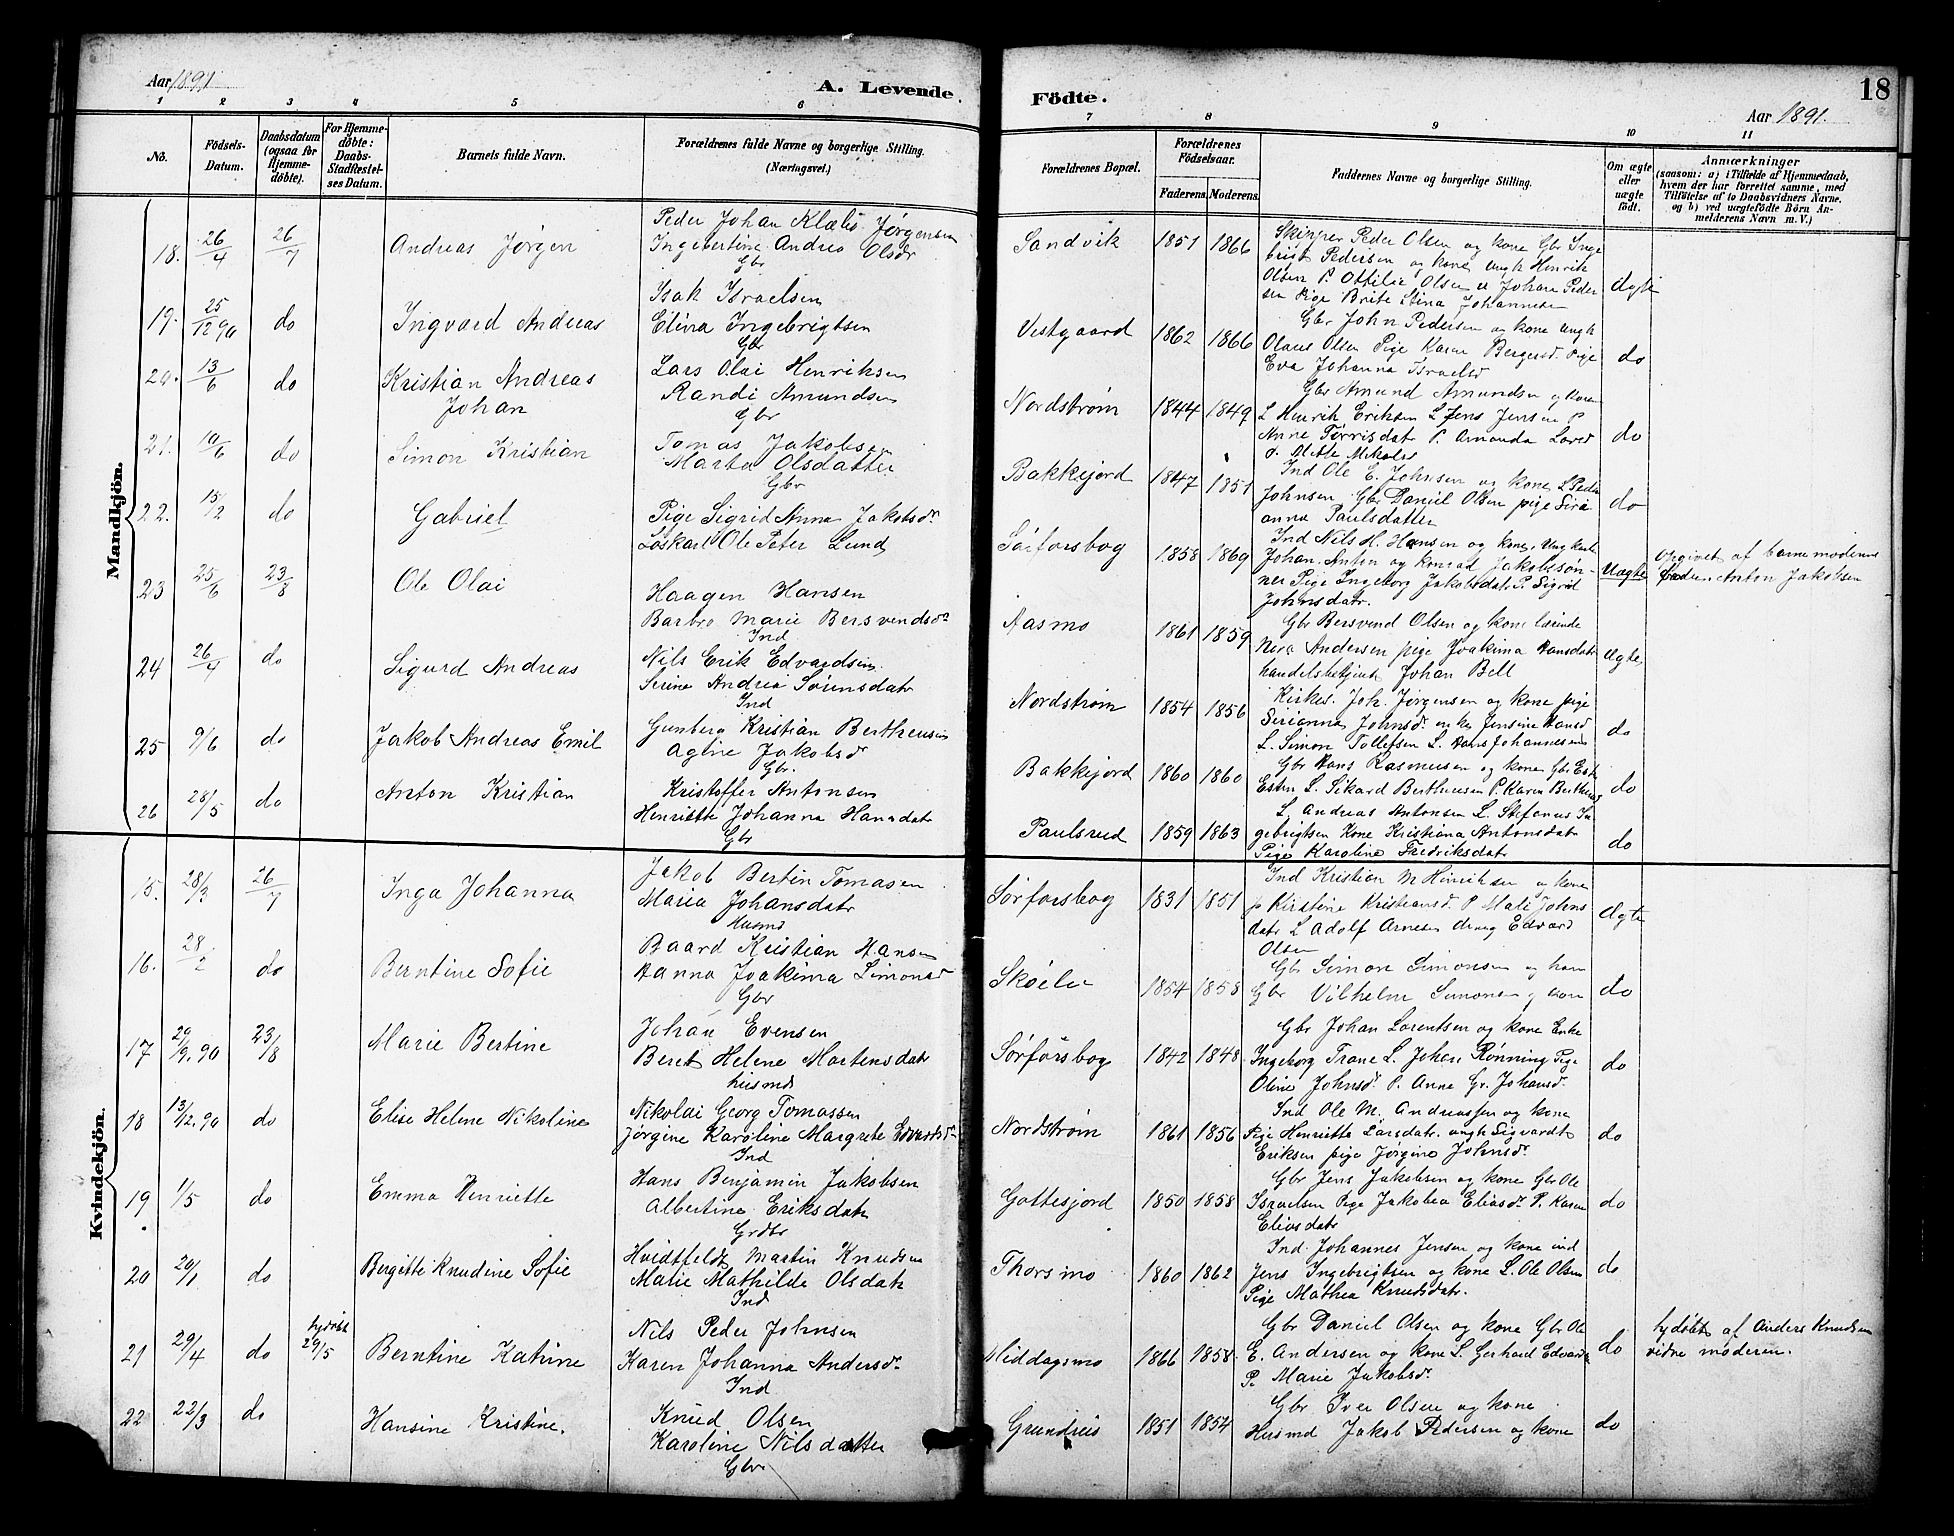 Aar 1891
A. Levende
Födte.
18
Aar 1891.
1 2 3 4 5 6 7 8 9 10 11
No.
Födsels-Datum.
Daabsdatum (ogsaa for Hjemme-döbte).
For Hjemme-döbte: Daabs-Stadfæstelses Datum.
Barnets fulde Navn.
Forældrenes fulde Navne og borgerlige Stilling.
(Næringsvei.)
Forældrenes Bopæl.
Forældrenes Födselsaar.
Faderens. Moderens.
Faddernes Navne og borgerlige Stilling.
Om ægte eller uægte födt.
Anmærkninger
(saasom: a) i Tilfælde af Hjemmedaab,
hvem der har forrettet samme, med
Tilföielse af to Daabsvidners Navne.
og b) ved uægtefödte Börn An-
melderens Navn m. V.)
Mandkjön.
18. 26/4 26/7 Andreas Jörgen
Peder Johan Klæbo Jörgensen
Ingebertine Andrea Olsdr
Gbr
Sandvik 1851 1866
Skipper Peder Olsen og kone Gbr Inge
brigt Pedersen og kone Ungk Henrik
Olsen P. Ottilie Olsen u Johan Peder
sen Pige Brite Stina Johannesen
ægte
19. 25/12 90 do Ingvard Andreas
Isak Israelsen
Elina Ingebrigtsen
Gbr
Vestgaard 1862 1866
Gbr John Pedersen og kone Ungk
Olaus Olsen Pige Karen Bergersd. Pige
Eva Johanna Israelsd
do
20. 13/6 do Kristian Andreas
Johan
Lars Olai Henriksen
Randi Amundsen
Gbr
Nordstrøm 1844 1849
Gbr Amund Amundsen og kone
L Henrik Eriksen L Jens Jensen P
Anne Tørrisdatr P. Amanda Larsd
do
21. 10/6 do Simon Kristian
Tomas Jakobsen
Marta Olsdatter
Gbr
Bakkejord 1847 1851
Ind Ole E. Johnsen og kone L Peder
Johnsen Gbr Daniel Olsen pige Siri
anna Paulsdatter
do
22. 15/2 do Gabriel
Pige Sigrid Anna Jakobsdr
Løskarl Ole Peter Lund
Sørforsbog 1858 1869
Ind Nils H. Hansen og kone, Ungkarle
Johan, Anton og Konrad Jakobsøn-
ner Pige Ingeborg Jakobsdatr P. Sigrid
Johnsdatr.
Uægte
Opgivet af barnemoderens
Anton Jakobsen
23 25/6 23/8 Ole Olai
Haagen Hansen
Barbro Marie Bersvendsdr
Ind
Aasmo 1861 1859
Gbr Bersvend Olsen og kone
Andersen pige Joakima Hansdatr
handelsbetjent Johan Bell
Ægte
24 26/4 do Sigurd Andreas
Nils Erik Edvardsen
Serine Andrea Sörensdatr
Ind
Nordstrøm 1854 1856
Kirkes. Joh. Jørgensen og kone pige
Sirianna Johnsdr enke Jensine Hansd
L. Simon Tollefsen L. Hans Johannesen
do
25 9/6 do Jakob Andreas Emil
Gunbero Kristian Bertheusen
Agline Jakobsd
Gbr.
Bakkejord 1860 1860
Gbr Hans Rasmusen og kone Gbr Est
Esten L. Sikard Bertheusen P. Karen Bertheus
do
26 28/5 do Anton Kristian
Kristoffer Antonsen
Henriette Johanna Hansdatr
Gbr
Paulsrud 1859 1863
L. Andreas Antonsen L. Stefanus In
gebrigtsen Kone Kristiana Antonsdatr
Pige Karoline Fredriksdatr
do
Kvindekjön.
15. 28/3 26/7 Inga Johanna
Jakob Bertin Tomasen
Maria Johansdatr
Husmd
Sørforsbog 1831 1851
Ind Kristian M Hinriksen og kone
p Kirstine Kristiansd. P Mali Johns
datr L Adolf Arnesen dreng Edvard
Olsen
Ægte
16. 28/2 do Berntine Sofie
Baard Kristian Hansen
Hanna Joakima Simonsd
Gbr
1854 1858
Gbr Simon Simonsen og kone
Gbr Vilhelm Simonsen og kone
do
17 20/9.90 23/8 Marie Bertine
Johan Evensen
Beret Helene Martensdatr
husmd
Sørforsbog 1842 1848
Gbr Johan Lorentsen og kone Enke
Ingeborg Trane L. Johan Rønning Pige
Oline Johnsdr. P. Anne Gr. Johansd.
do
18 13/12.90 do Elise Helene Nikoline
Nikolai Georg Tomassen
Jørgine Karoline Margrete Edvardsdr
Ind
Nordstrøm 1861 1856
Ind Ole M. Andreassen og kone
Pige Henriette Larsdatr. ungk Sigvardt
Eriksen pige Jørgine Johnsdr
do
19 1/5 do Emma Henriette
Hans Benjamin Jakobsen
Albertine Eriksdatr
Grdbr
Gottesjord 1850 1858
Gbr Jens Jakobsen og kone Gbr Ole
Israelsen Pige Jakobea Eliasdr P. Karen
Eliasdatr
do
20 20/1 do Bergitte Knudine Sofie
Hvidtfeldt Martin Knudsen
Malie Mathilde Olsdatr
Ind
Thorsmo 1860 1862
Ind. Johannes Jensen og kone ind
Jens Ingebrigtsen og kone L. Ole Olsen
Pige Mathea Knudsdatr.
do
21 29/4 do 29/5 Berntine Katrine
Nils Peder Johnsen
Karen Johanna Andersdr
Ind
Middagsmo 1866 1858
Gbr Daniel Olsen og kone Gbr Ole
E. Andersen og kone L. Gerhard Edvards
P. Marie Jakobsdr
do
hjdöbt af Anders Knudsen
vidne moderen.
22 22/3 do Hansine Kristine.
Knud Olsen
Karoline Nilsdatter
Gbr
Grundreis 1851 1854
Gbr Iver Olsen og kone
Husmd Jakob Pedersen og kone
do